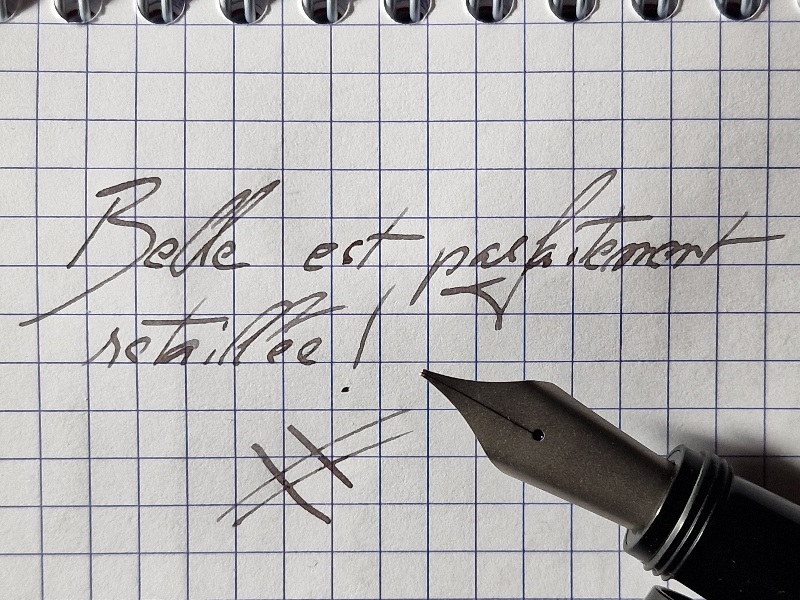 Belle est parfaitement
retaillée !